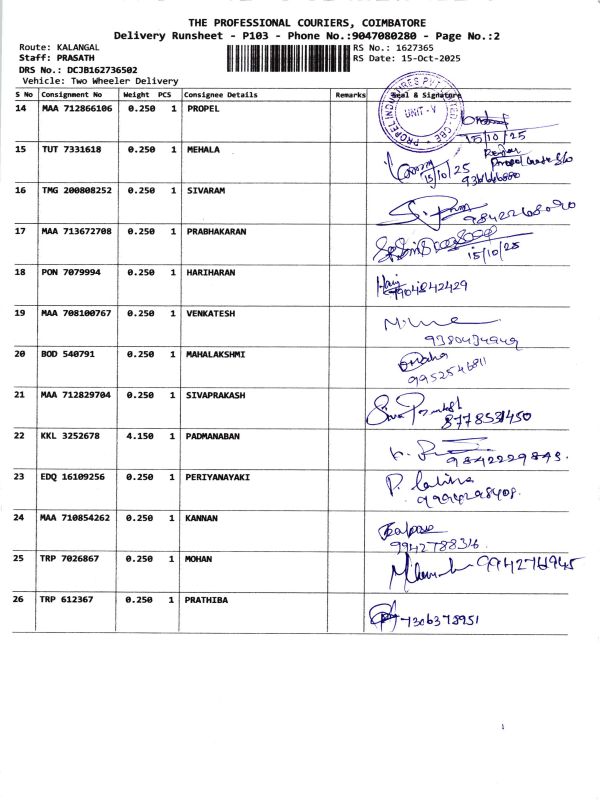 THE PROFESSIONAL COURIERS, COIMBATORE
Delivery Runsheet - P103 - Phone No.:9047080280 - Page No.:2
Route: KALANGAL
RS No.: 1627365
Staff: PRASATH
RS Date: 15-Oct-2025
DRS No.: DCJB162736502
Vehicle: Two Wheeler Delivery
S No Consignment No Weight PCS Consignee Details Remarks Seal & Signature
14 MAA 712866106 0.250 1 PROPEL
PROPEL INDUSTRIES PVT LTD - CBE
UNIT - V
15/10/25
15 TUT 7331618 0.250 1 MEHALA
15/10/25
16 TMG 200808252 0.250 1 SIVARAM
9842268090
17 MAA 713672708 0.250 1 PRABHAKARAN
15/10/25
18 PON 7079994 0.250 1 HARIHARAN
Hari
7904842429
19 MAA 708100767 0.250 1 VENKATESH
9380434949
20 BOD 540791 0.250 1 MAHALAKSHMI
9952546811
21 MAA 712829704 0.250 1 SIVAPRAKASH
8778531450
22 KKL 3252678 4.150 1 PADMANABAN
9842229843
23 EDQ 16109256 0.250 1 PERIYANAYAKI
9994298408
24 MAA 710854262 0.250 1 KANNAN
9942788316
25 TRP 7026867 0.250 1 MOHAN
9942761945
26 TRP 612367 0.250 1 PRATHIBA
7306378951